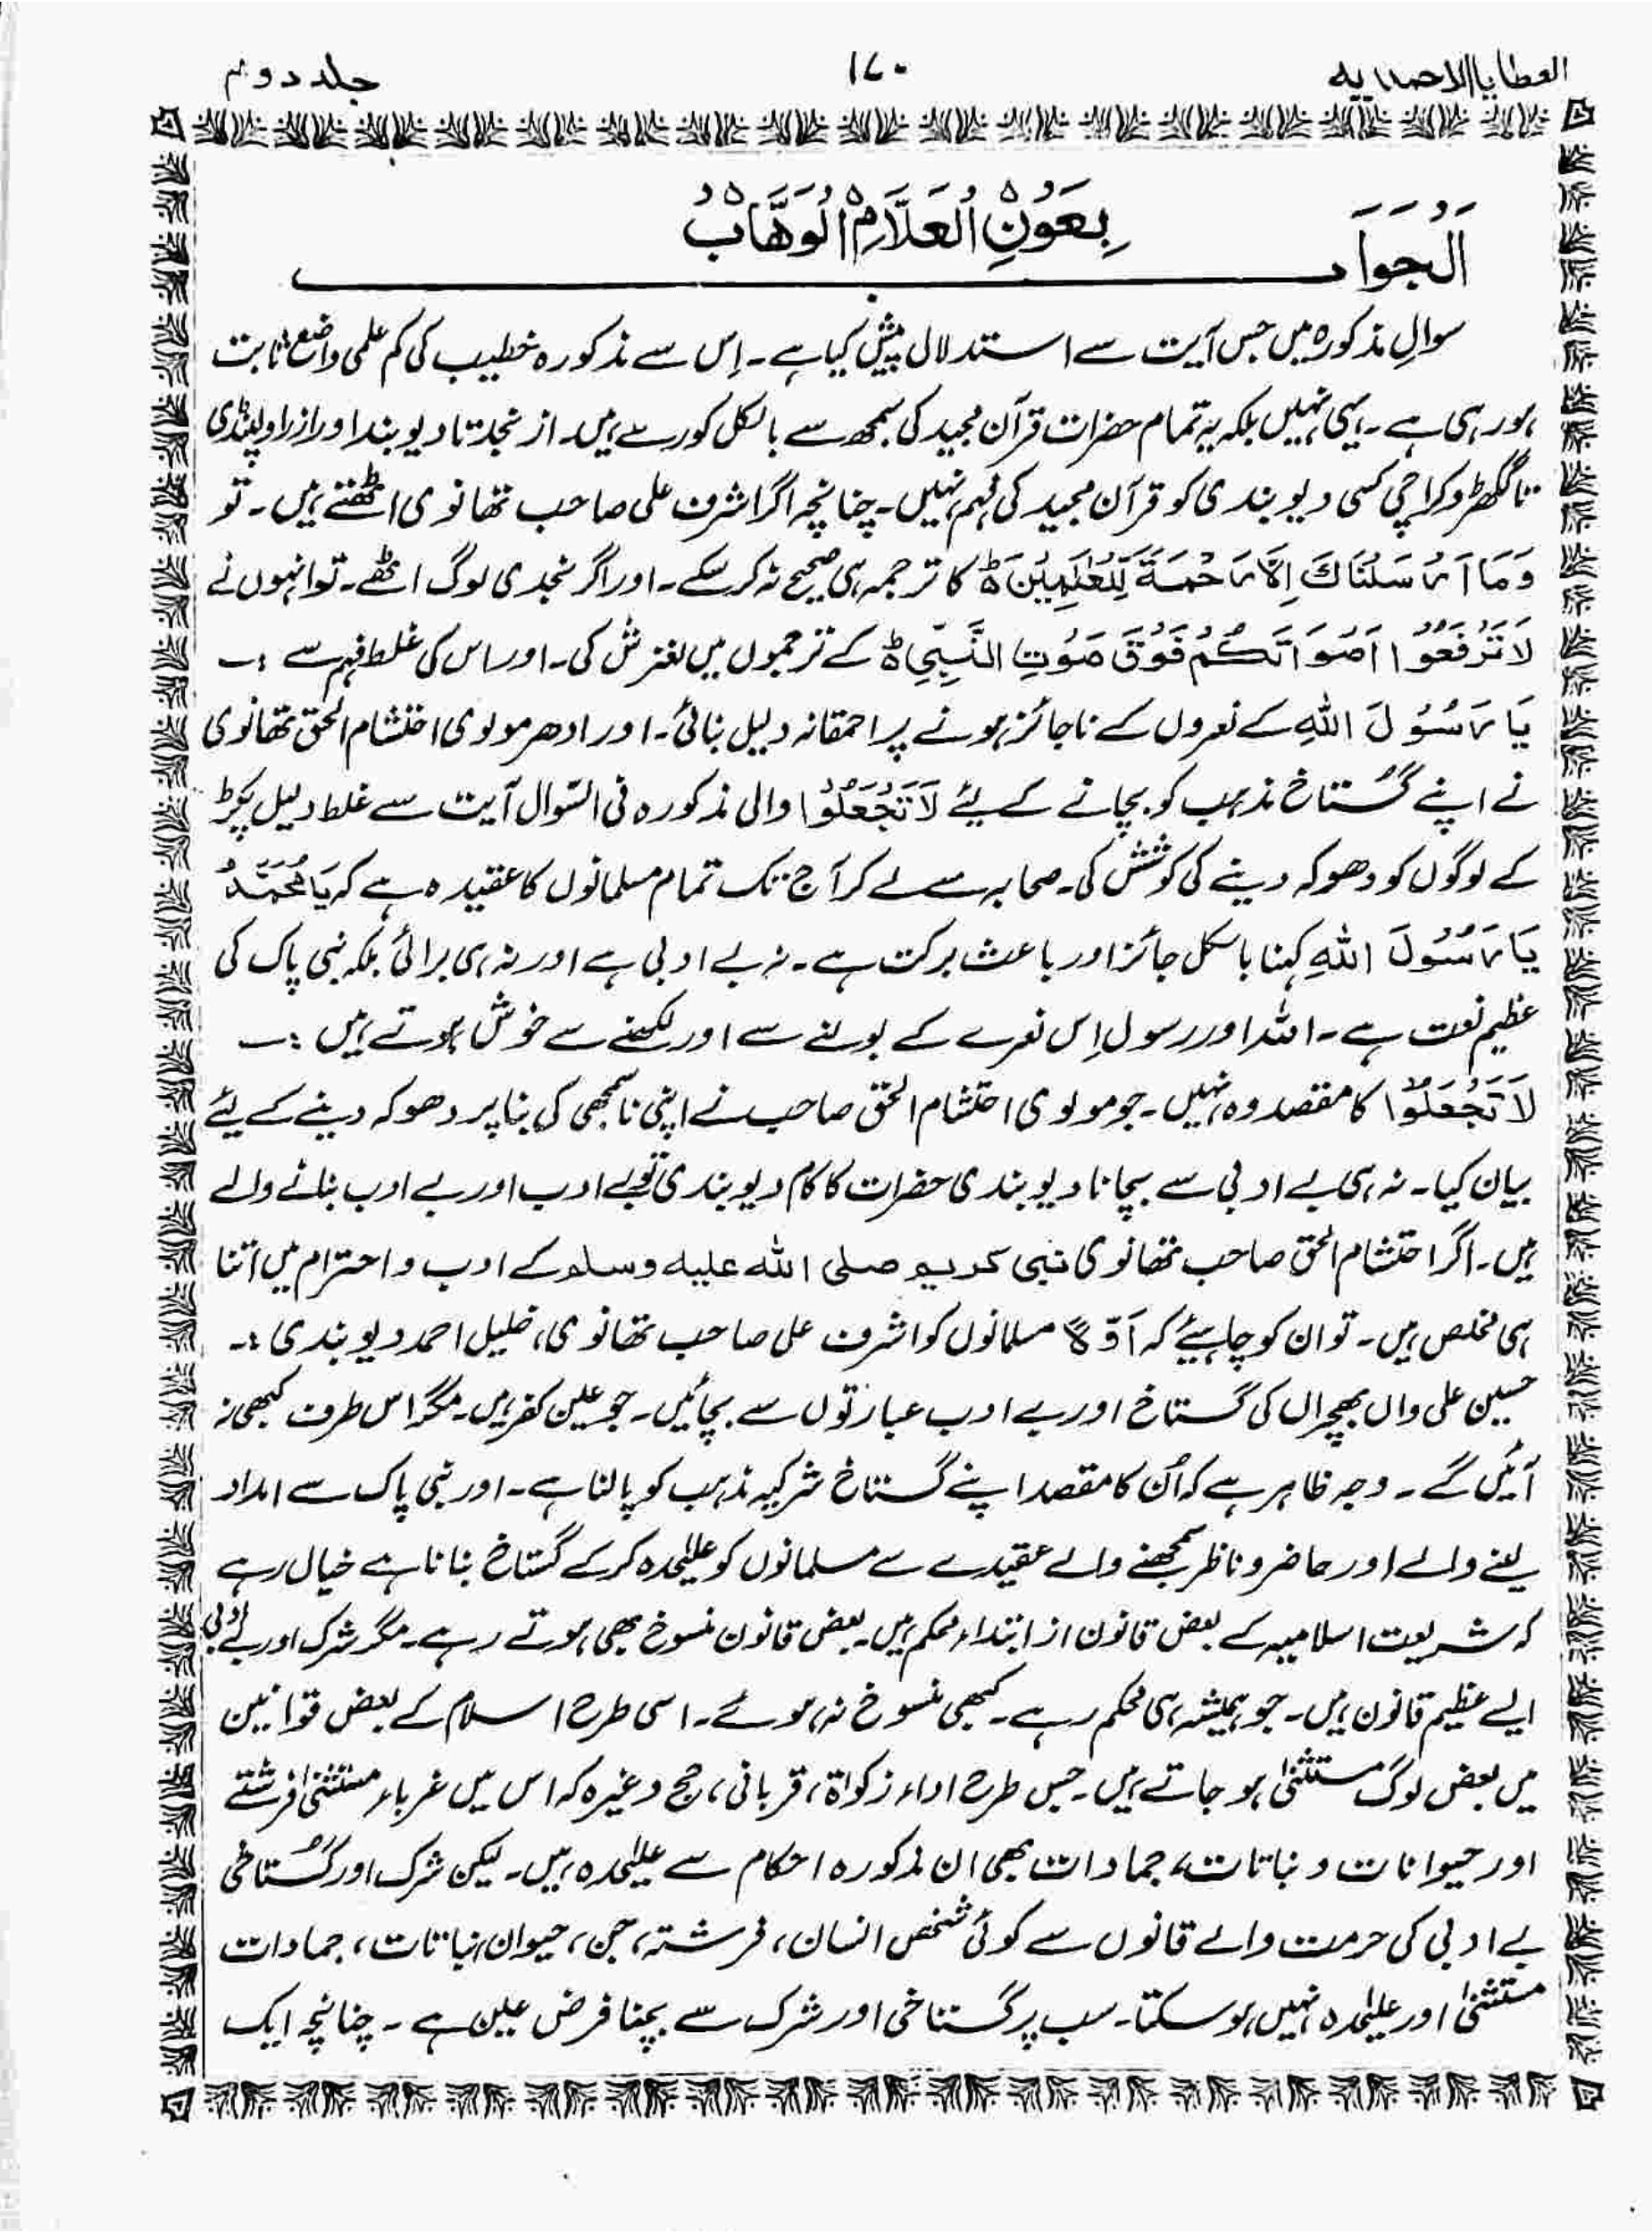 العطایا الاحمدیہ ۱۷۰ جلد دوم
بِعَوْنِ الْعَلَّامِ الْوَهَّابْ
اَلْجَوَاب
سوالِ مذکورہ میں جس آیت سے استدلال پیش کیا ہے۔ اِس سے مذکورہ خطیب کی کم علمی واضح ثابت
ہو رہی ہے۔ یہی نہیں بلکہ یہ تمام حضرات قرآن مجید کی سمجھ سے بالکل کورے ہیں۔ از نجد تا دیوبند اور از راولپنڈی
تا گکھڑ و کراچی کسی دیوبندی کو قرآن مجید کی فہم نہیں۔ چنانچہ اگر اشرف علی صاحب تھانوی اٹھتے ہیں۔ تو
وَمَا اَرْسَلْنَاكَ اِلَّا رَحْمَةً لِّلْعٰلَمِيْنَ ہ کا ترجمہ ہی صحیح نہ کر سکے۔ اور اگر نجدی لوگ اٹھے۔ تو انہوں نے
لَا تَرْفَعُوْا اَصْوَاتَكُمْ فَوْقَ صَوْتِ النَّبِيِّ ہ کے ترجموں میں لغزش کی۔ اور اس کی غلط فہم سے :۔
یَا رَسُوْلَ اللهِ کے نعروں کے ناجائز ہونے پر احمقانہ دلیل بنائی۔ اور ادھر مولوی احتشام الحق تھانوی
نے اپنے گستاخ مذہب کو بچانے کے لیئے لَا تَجْعَلُوْا والی مذکورہ فی السّوال آیت سے غلط دلیل پکڑ
کے لوگوں کو دھوکہ دینے کی کوشش کی۔ صحابہ سے لے کر آج تک تمام مسلمانوں کا عقیدہ ہے کہ یَا مُحَمَّدُ
یَا رَسُوْلَ اللهِ کہنا بالکل جائز اور باعث برکت ہے۔ نہ بے ادبی ہے اور نہ ہی برائی بلکہ نبی پاک کی
عظیم نعت ہے۔ اللہ اور رسول اِس نعرے کے بولنے سے اور لکھنے سے خوش ہوتے ہیں :۔
لَا تَجْعَلُوْا کا مقصد وہ نہیں۔ جو مولوی احتشام الحق صاحب نے اپنی نا سمجھی کی بنا پر دھوکہ دینے کے لیئے
بیان کیا۔ نہ ہی بے ادبی سے بچانا دیوبندی حضرات کا کام دیوبندی تو بے ادب اور بے ادب بنانے والے
ہیں۔ اگر احتشام الحق صاحب تھانوی نبی کریم صلی اللہ علیہ وسلم کے ادب و احترام میں اتنا
ہی مخلص ہیں۔ تو ان کو چاہیئے کہ اَوَّلًا مسلمانوں کو اشرف علی صاحب تھانوی، خلیل احمد دیوبندی :۔
حسین علی واں بھچراں کی گستاخ اور بے ادب عبارتوں سے بچائیں۔ جو عین کفر ہیں۔ مگر اس طرف کبھی نہ
آئیں گے۔ وجہ ظاہر ہے کہ اُن کا مقصد اپنے گستاخ شرکیہ مذہب کو پالنا ہے۔ اور نبی پاک سے امداد
لینے والے اور حاضر و ناظر سمجھنے والے عقیدے سے مسلمانوں کو علیٰحدہ کر کے گستاخ بنانا ہے خیال رہے
کہ شریعت اسلامیہ کے بعض قانون از ابتداء محکم ہیں۔ بعض قانون منسوخ بھی ہوتے رہے۔ مگر شرک اور بے ادبی
ایسے عظیم قانون ہیں۔ جو ہمیشہ ہی محکم رہے۔ کبھی منسوخ نہ ہوئے۔ اسی طرح اسلام کے بعض قوانین
میں بعض لوگ مستثنیٰ ہو جاتے ہیں۔ جس طرح اداء زکواۃ، قربانی، حج وغیرہ کہ اس میں غرباء مستثنیٰ فرشتے
اور حیوانات و نباتات، جمادات بھی ان مذکورہ احکام سے علیٰحدہ ہیں۔ لیکن شرک اور گستاخی
بے ادبی کی حرمت والے قانوں سے کوئی شخص انسان، فرشتہ، جن، حیوان، نباتات، جمادات
مستثنیٰ اور علیٰحدہ نہیں ہو سکتا۔ سب پر گستاخی اور شرک سے بچنا فرض عین ہے۔ چنانچہ ایک